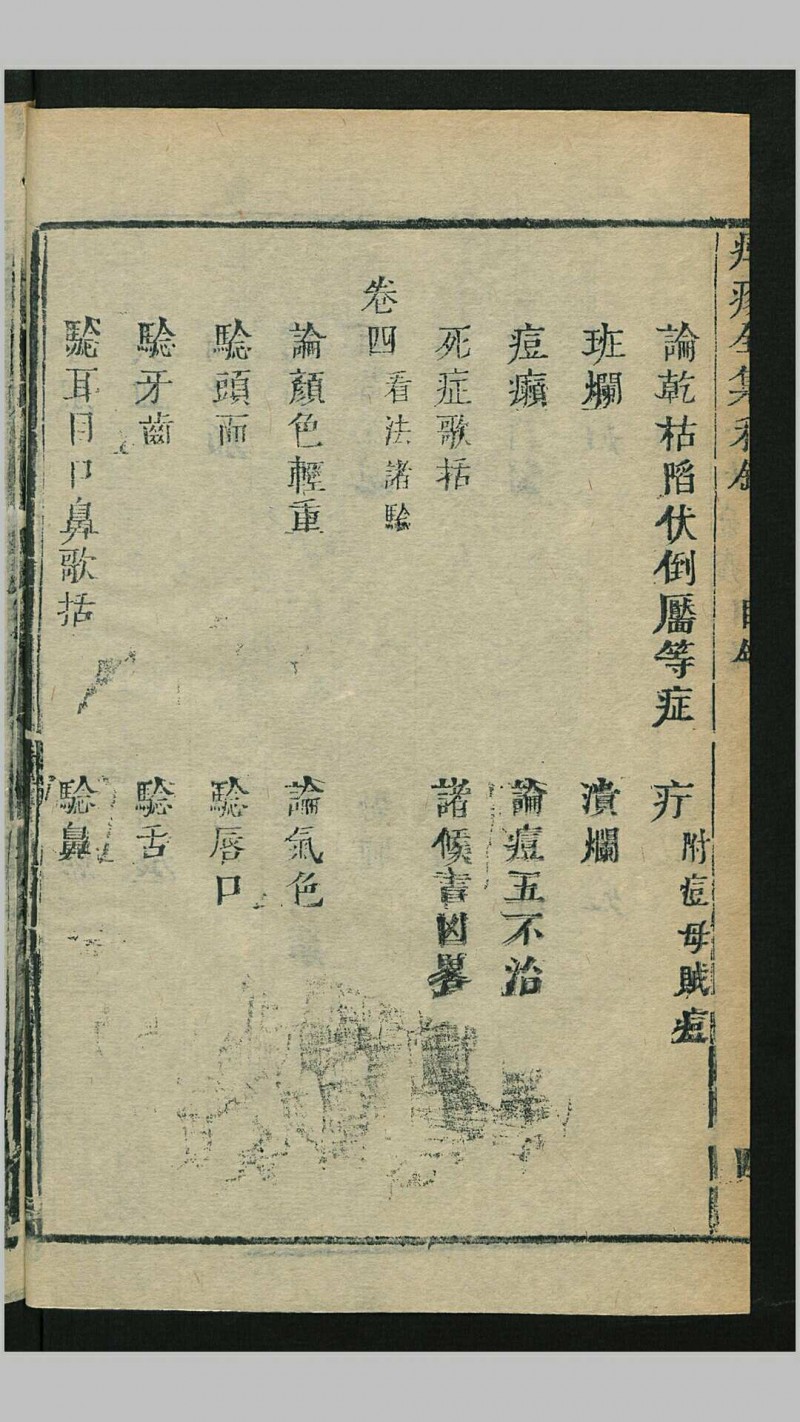 論乾枯陷伏倒靨等症　疔附痘母賊痘
班爛　潰爛
痘癩　論痘五不治
死症歌括　諸候吉凶畧
卷四看法諸騐
論顏色輕重　論氣色
騐頭面　騐唇口
騐牙齒　騐舌
騐耳目口鼻歌括　騐鼻